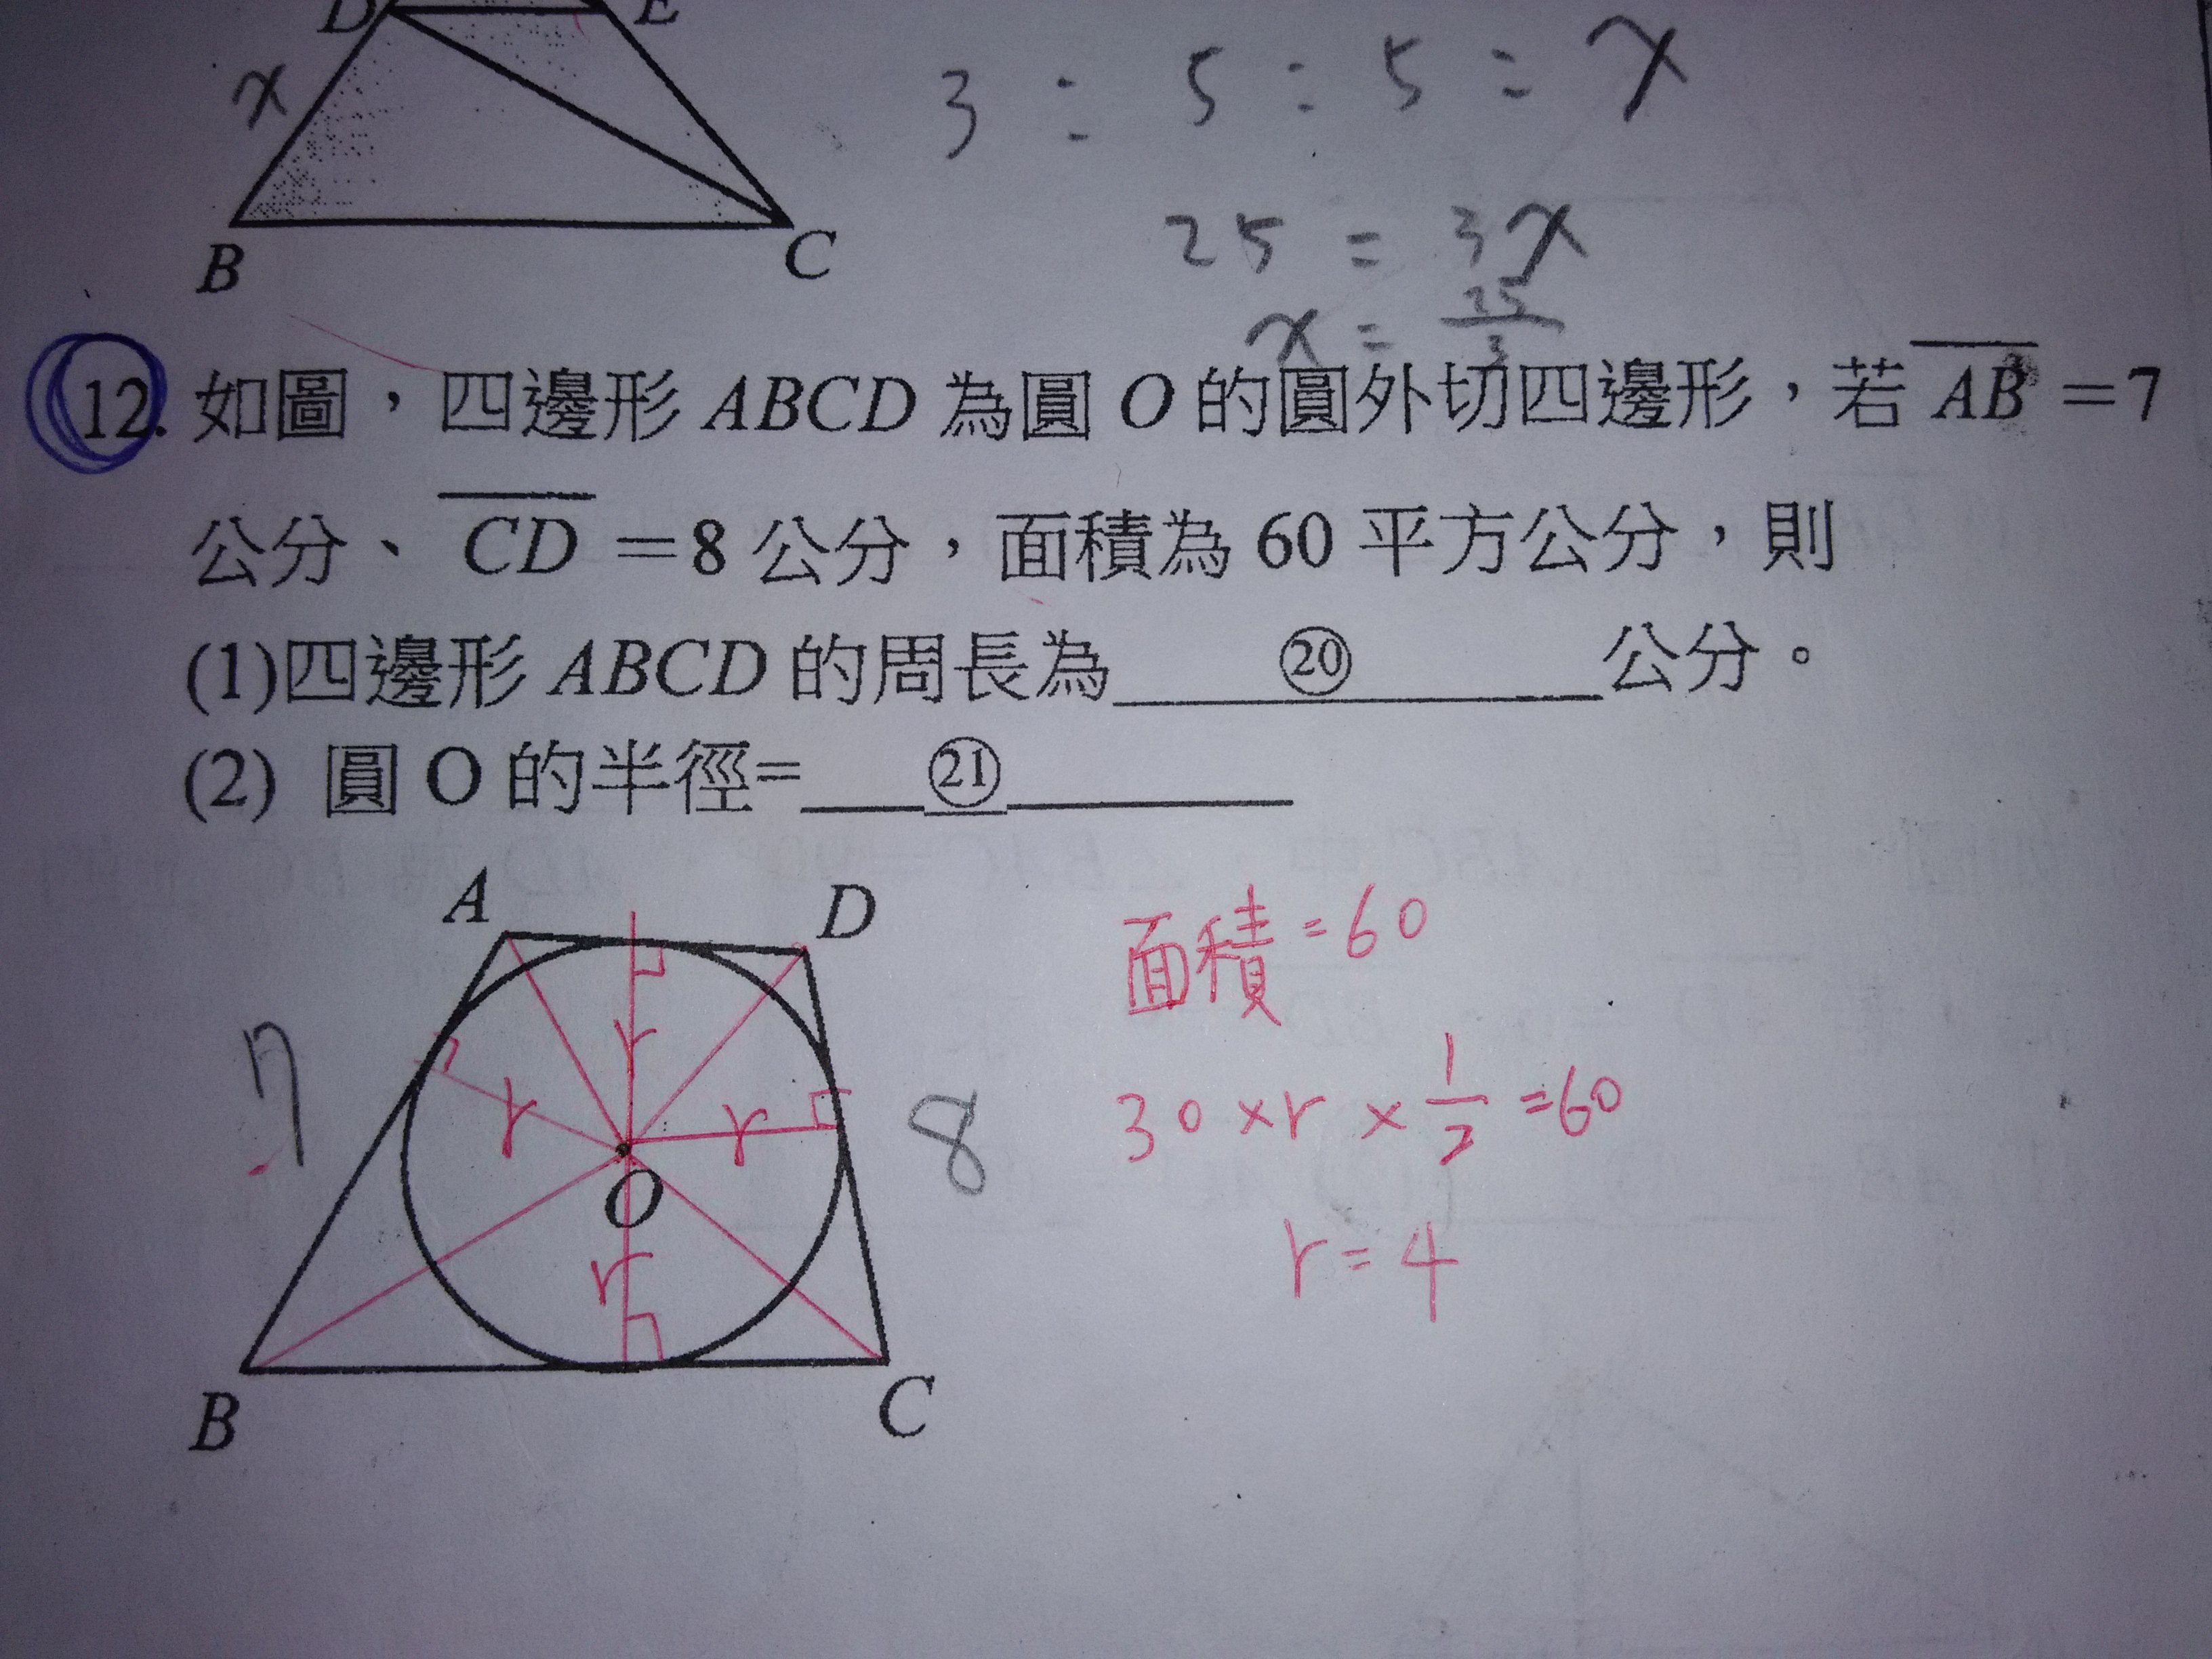 D E
x
B C
3 : 5 = 5 = x
25 = 3x
x = 25/3
12. 如圖，四邊形 ABCD 為圓 O 的圓外切四邊形，若 AB =7
公分、 CD =8 公分，面積為 60 平方公分，則
(1)四邊形 ABCD 的周長為 ⑳ 公分。
(2) 圓 O 的半徑= ㉑
A D
面積=60
7 r r r 8
30×r×1/2=60
O
r
r=4
B C